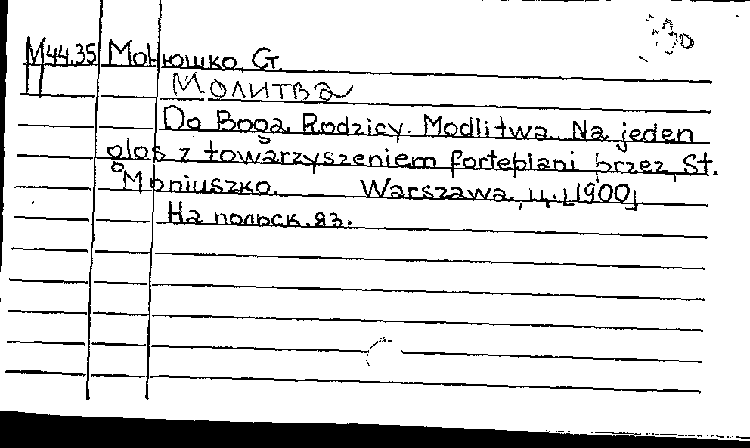 М44.35 Монюшко, С.
Молитва
Do Boga Rodzicy. Modlitwa. Na jeden
głos z towarzyszeniem fortepiani przez St.
Moniuszko. Warszawa, ц. [1900]
На польск. яз.